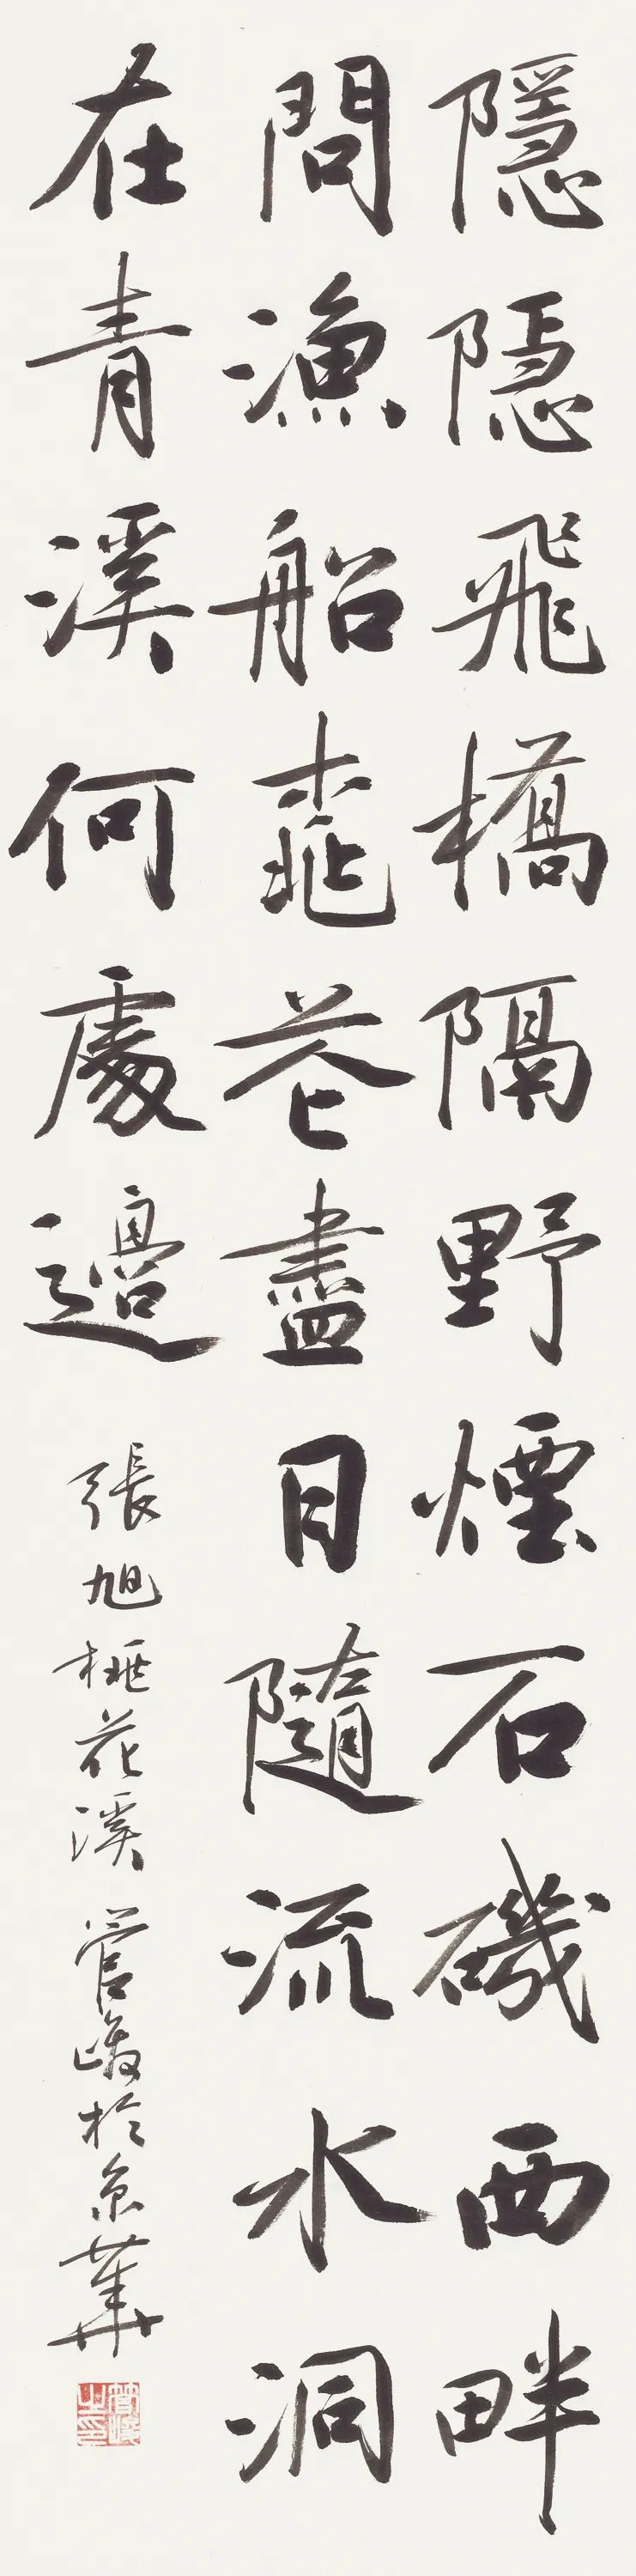 隱隱飛橋隔野煙石磯西畔
問漁船桃花盡日隨流水洞
在青溪何處邊
張旭桃花溪 管峻於京華
管峻之印